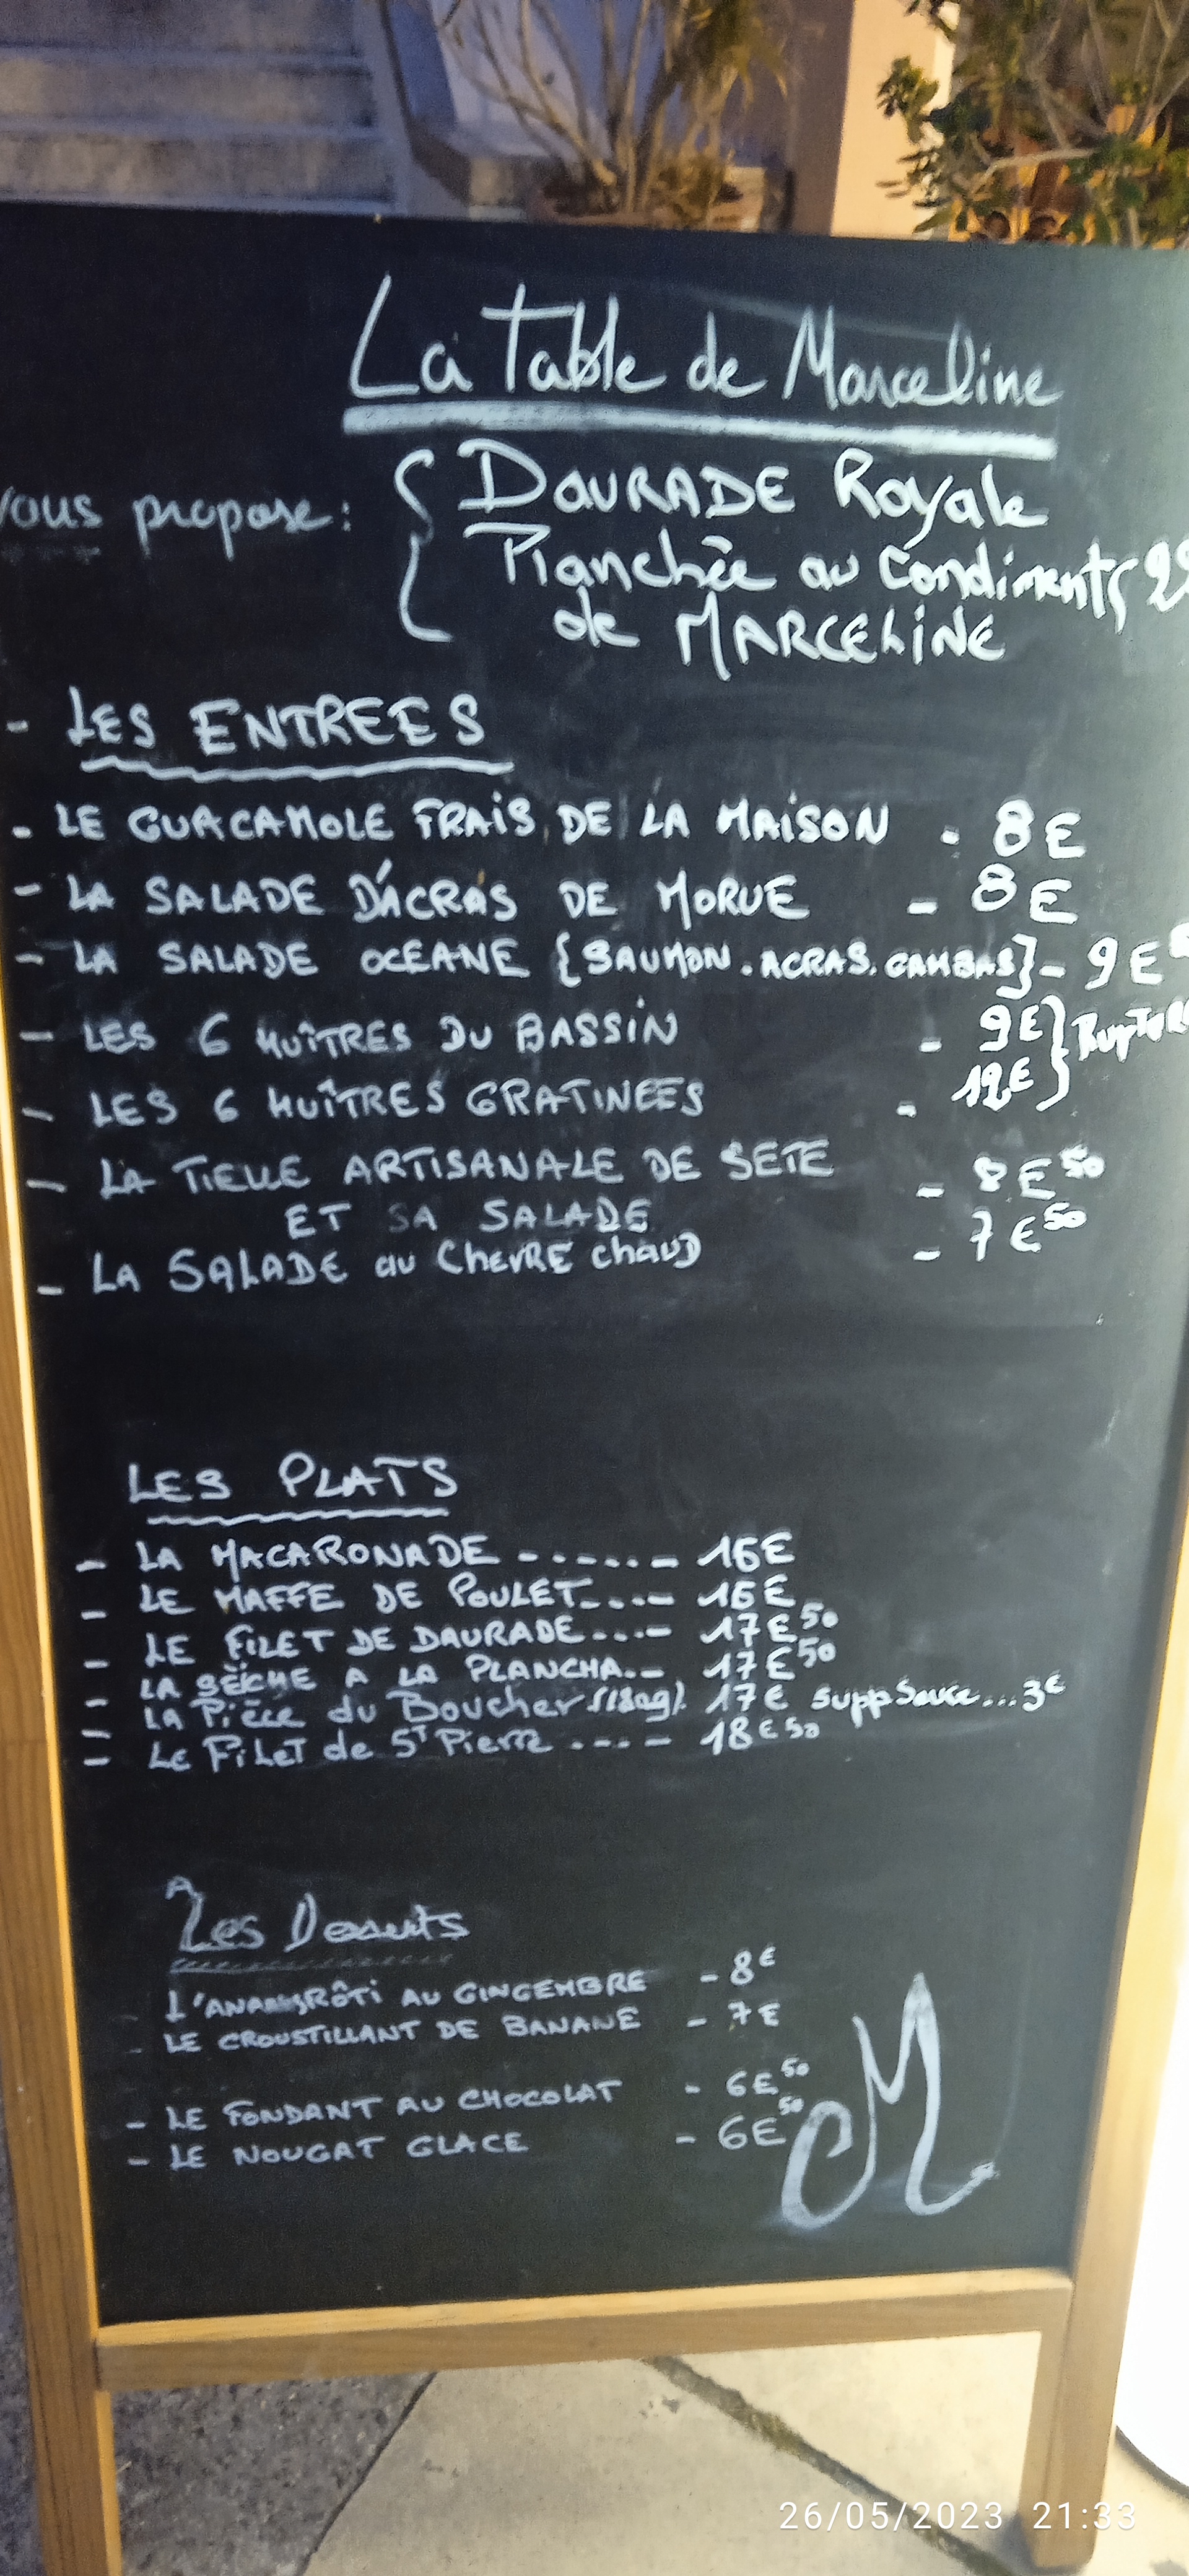 La Table de Marceline
Vous propose : { DauRADE Royale
Planchée au Condiments
de MARCELINE
- LES ENTREES
- LE GUACAMOLE FRAIS DE LA MAISON - 8€
- LA SALADE D'ACRAS DE MORUE - 8€
- LA SALADE OCEANE {SAUMON. ACRAS. GAMBAS} - 9€
- LES 6 HUÎTRES DU BASSIN - 9€ } RUPTURE
- LES 6 HUÎTRES GRATINEES - 12€
- LA TIELLE ARTISANALE DE SETE - 8€50
ET SA SALADE
- LA SALADE au CHEVRE chauD - 7€50
LES PLATS
- LA MACARONADE ------ 16€
- LE MAFFE DE POULET....- 16€
- LE FILET DE DAURADE...- 17€50
- LA SEICHE A LA PLANCHA..- 17€50
- LA Pièce du Boucher 17€ Supp Sauce...3€
- Le FiLeT de ST Pierre ----- 18€50
Les Desserts
- L'ANANAS RÔTI AU GINGEMBRE - 8€
- LE CROUSTILLANT DE BANANE - 7€
- LE FONDANT AU CHOCOLAT - 6€50
- LE NOUGAT GLACE - 6€50
M
26/05/2023 21:33